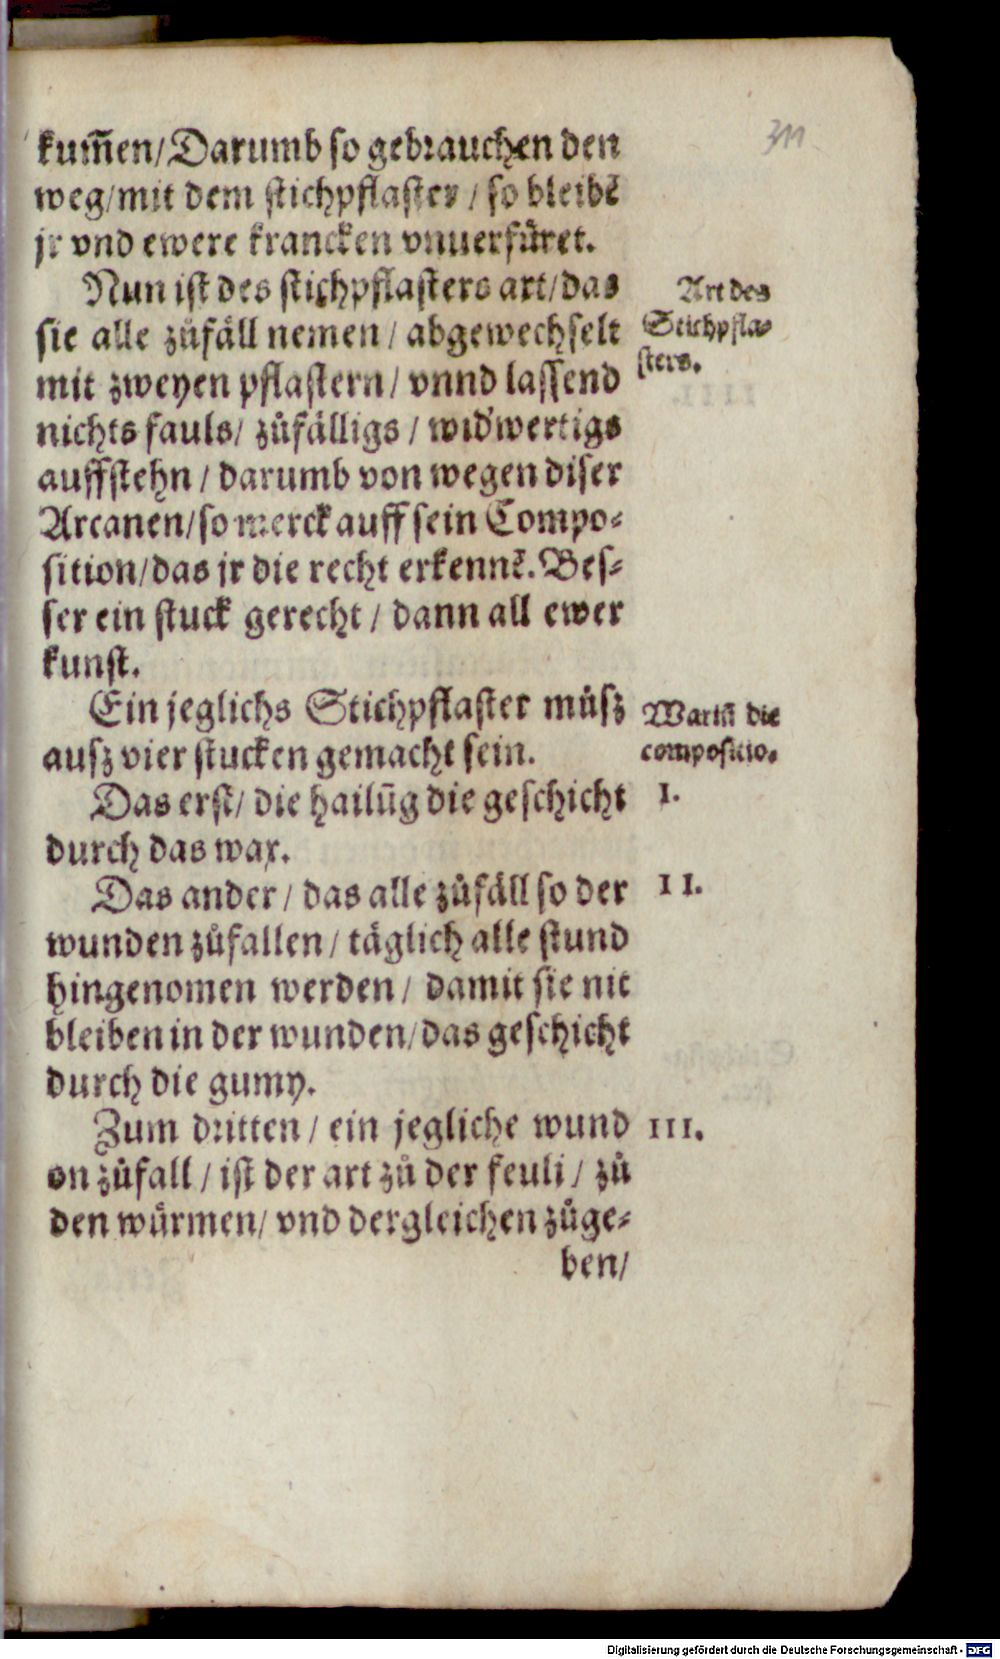 311
kum̃en/Darumb so gebrauchen den
weg/mit dem stichpflaster / so bleibẽ
jr vnd ewere krancken vnuerfüret.
Nun ist des stichpflasters art/das
Art des
Stichpfla-
sters.
sie alle zůfäll nemen / abgewechselt
mit zweyen pflastern / vnnd lassend
nichts fauls/ zůfälligs / wid'wertigs
auffstehn / darumb von wegen diser
Arcanen/so merck auff sein Compo-
sition/das jr die recht erkennẽ. Bes-
ser ein stuck gerecht / dann all ewer
kunst.
Ein jeglichs Stichpflaster můsz
Warũ die
compositio.
ausz vier stucken gemacht sein.
Das erst/ die hailũg die geschicht
I.
durch das wax.
Das ander / das alle zůfäll so der
II.
wunden zůfallen / täglich alle stund
hingenomen werden / damit sie nit
bleiben in der wunden/das geschicht
durch die gumy.
Zum dritten / ein jegliche wund
III.
on zůfall / ist der art zů der feuli / zů
den würmen/ vnd dergleichen zůge-
ben/
Digitalisierung gefördert durch die Deutsche Forschungsgemeinschaft - DFG